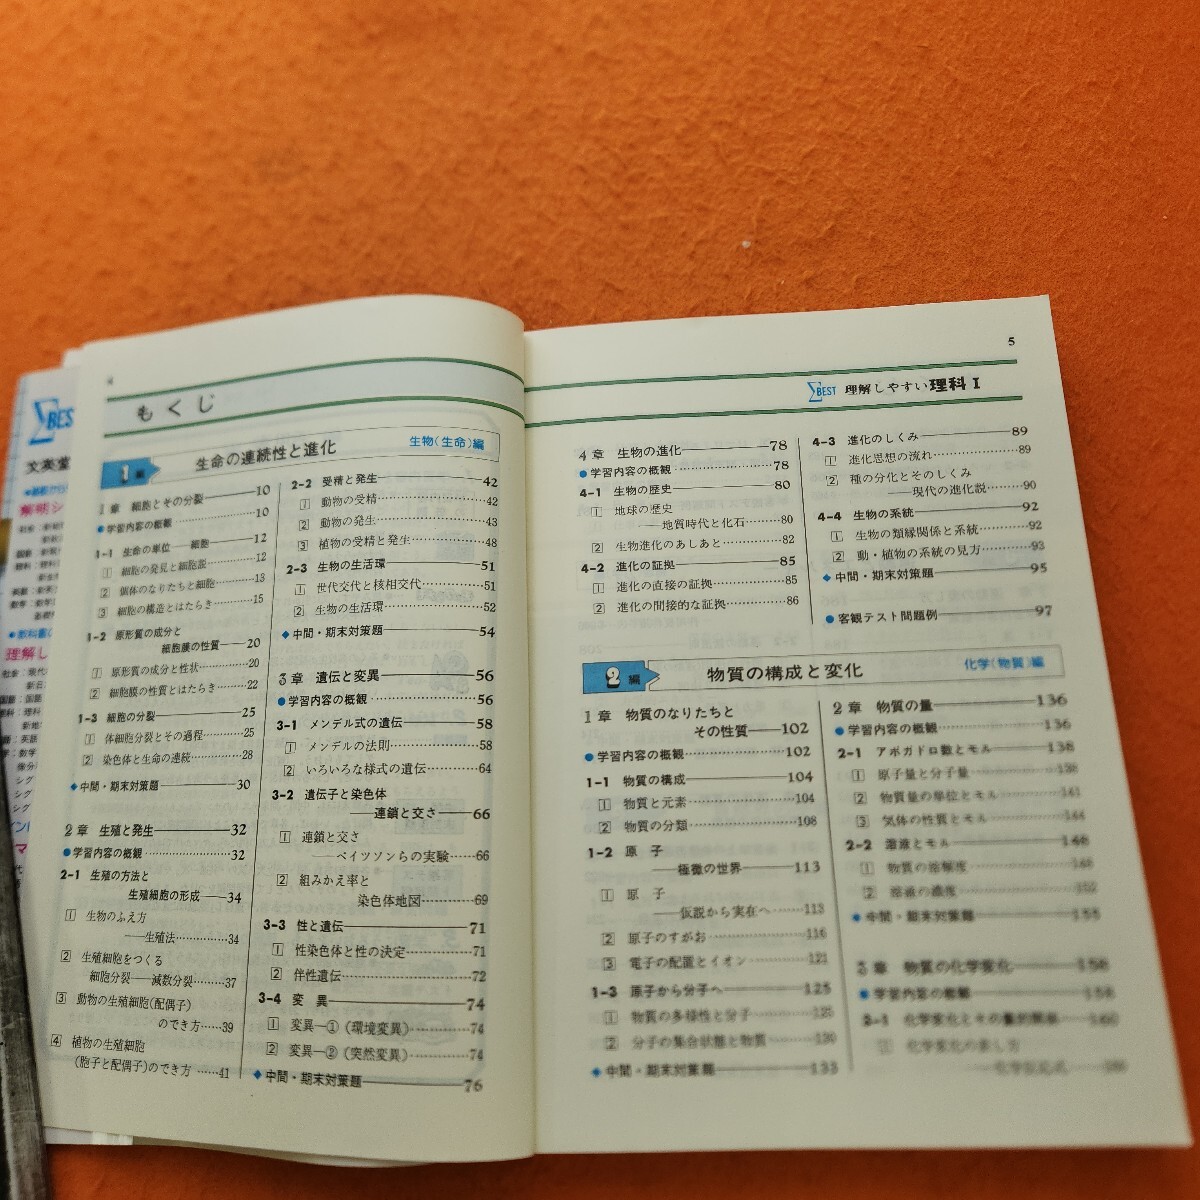 4
もくじ
1編 生命の連続性と進化 生物(生命)編
1章 細胞とその分裂 10
●学習内容の概観 10
1-1 生命の単位——細胞 12
1 細胞の発見と細胞説 12
2 個体のなりたちと細胞 13
3 細胞の構造とはたらき 15
1-2 原形質の成分と
細胞膜の性質 20
1 原形質の成分と性状 20
2 細胞膜の性質とはたらき 22
1-3 細胞の分裂 25
1 体細胞分裂とその過程 25
2 染色体と生命の連続 28
◆中間・期末対策題 30
2章 生殖と発生 32
●学習内容の概観 32
2-1 生殖の方法と
生殖細胞の形成 34
1 生物のふえ方
——生殖法 34
2 生殖細胞をつくる
細胞分裂——減数分裂 37
3 動物の生殖細胞(配偶子)
のでき方 39
4 植物の生殖細胞
(胞子と配偶子)のでき方 41
2-2 受精と発生 42
1 動物の受精 42
2 動物の発生 43
3 植物の受精と発生 48
2-3 生物の生活環 51
1 世代交代と核相交代 51
2 生物の生活環 52
◆中間・期末対策題 54
3章 遺伝と変異 56
●学習内容の概観 56
3-1 メンデル式の遺伝 58
1 メンデルの法則 58
2 いろいろな様式の遺伝 64
3-2 遺伝子と染色体
——連鎖と交さ 66
1 連鎖と交さ
——ベイツソンらの実験 66
2 組みかえ率と
染色体地図 69
3-3 性と遺伝 71
1 性染色体と性の決定 71
2 伴性遺伝 72
3-4 変異 74
1 変異—①(環境変異) 74
2 変異—②(突然変異) 74
◆中間・期末対策題 76
5
ΣBEST 理解しやすい理科Ⅰ
4章 生物の進化 78
●学習内容の概観 78
4-1 生物の歴史 80
1 地球の歴史
——地質時代と化石 80
2 生物進化のあしあと 82
4-2 進化の証拠 85
1 進化の直接の証拠 85
2 進化の間接的な証拠 86
4-3 進化のしくみ 89
1 進化思想の流れ 89
2 種の分化とそのしくみ
——現代の進化説 90
4-4 生物の系統 92
1 生物の類縁関係と系統 92
2 動・植物の系統の見方 93
◆中間・期末対策題 95
●客観テスト問題例 97
2編 物質の構成と変化 化学(物質)編
1章 物質のなりたちと
その性質 102
●学習内容の概観 102
1-1 物質の構成 104
1 物質と元素 104
2 物質の分類 108
1-2 原子
——極微の世界 113
1 原子
——仮説から実在へ 113
2 原子のすがお 116
3 電子の配置とイオン 121
1-3 原子から分子へ 125
1 物質の多様性と分子 125
2 分子の集合状態と物質 130
◆中間・期末対策題 133
2章 物質の量 136
●学習内容の概観 136
2-1 アボガドロ数とモル 138
1 原子量と分子量 138
2 物質量の単位とモル 141
3 気体の性質とモル 144
2-2 溶液とモル 148
1 物質の溶解度 148
2 溶液の濃度 152
◆中間・期末対策題 155
3章 物質の化学変化 158
●学習内容の概観 158
ΣBES
文英堂